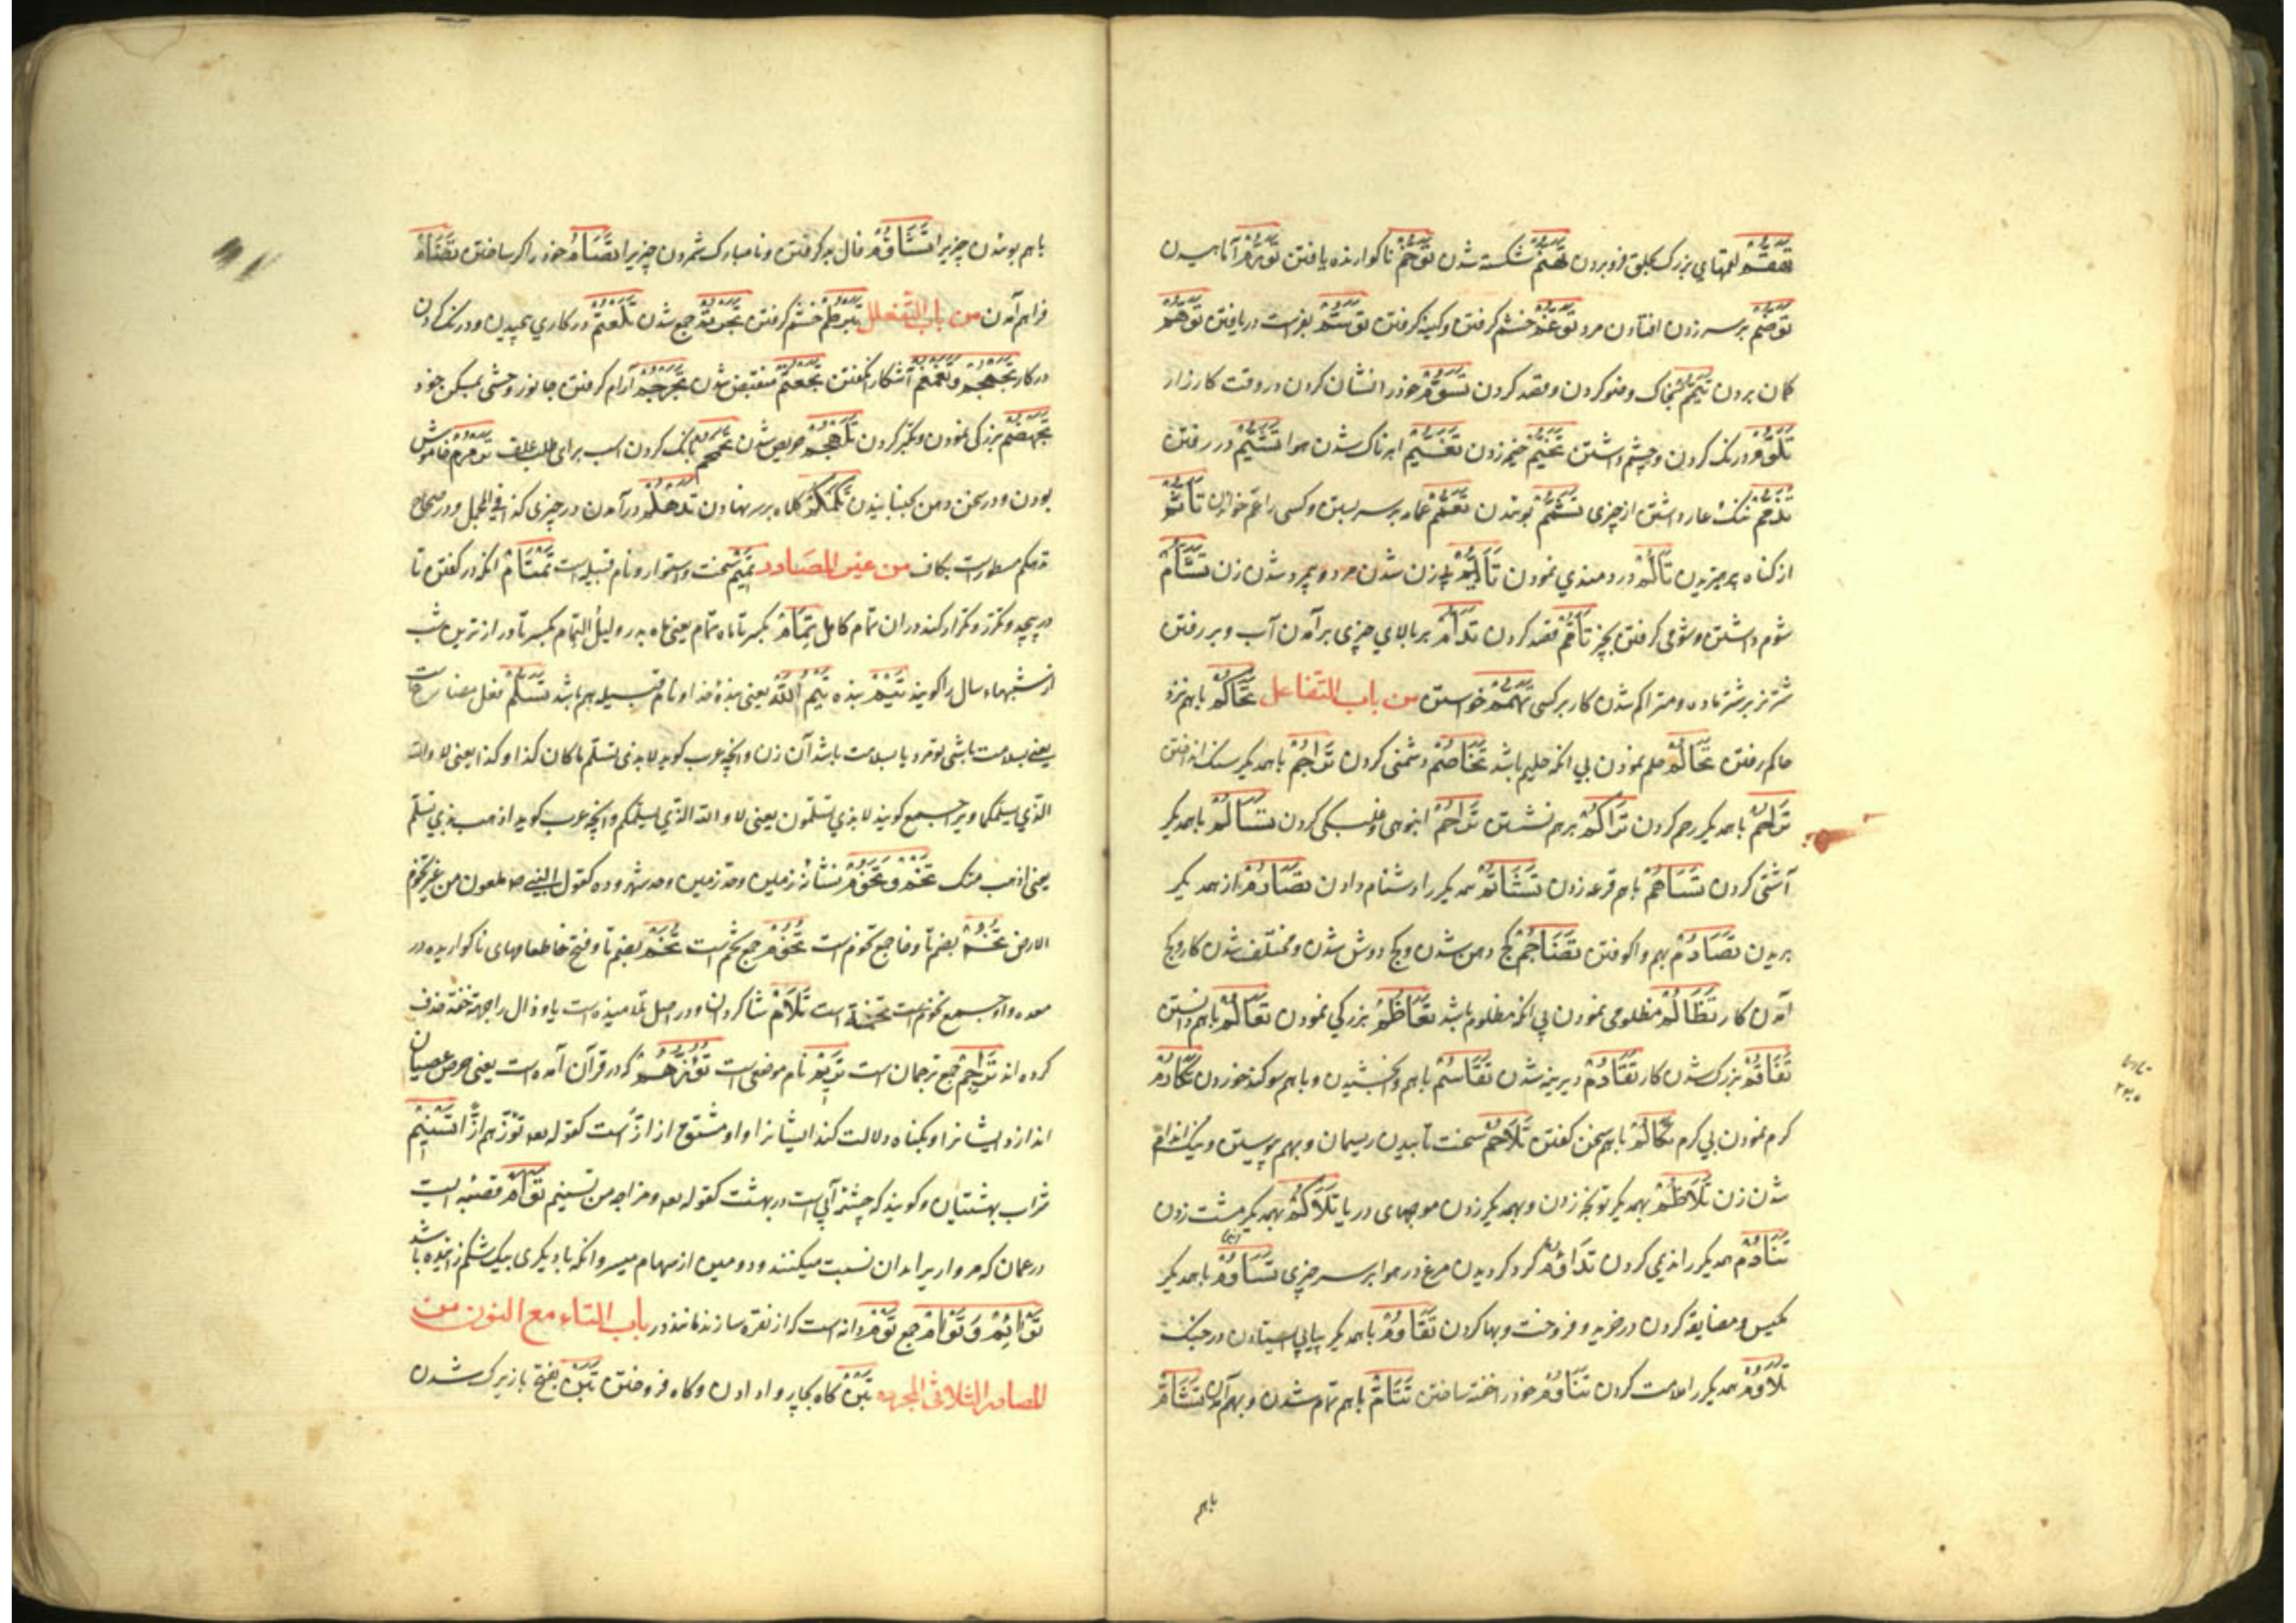 تهقّم لقمهای بزرک بحلق فرو بردن تهشّم شکسته شدن توخّم ناکوارنده یافتن تورّم آماهیدن
بر سر زدن افتادن مرد توغّم خشم کرفتن و کینه کرفتن توسّم بفراست دریافتن توهّم
کمان بردن تیمّم بخاک وضو کردن و قصد کردن تسوّم خود را نشان کردن در وقت کارزار
تلوّم درنک کردن و چشم داشتن تخیّم خیمه زدن تغیّم ابرناک شدن هوا
تذمّم ننک و عار داشتن از چیزی تشمّم بوئیدن تعمّم عمامه بر سر بستن و کسی را عم خواندن تأثّم
از کناه پرهیزیدن تألّم دردمندی نمودن تأیّم بی زن شدن مرد و بی مرد شدن زن تشأّم
شوم داشتن و شومی کرفتن بچیز تأمّم قصد کردن تدأّم بر بالای چیزی برآمدن آب و بر رفتن
شتر نر بر شتر ماده و متراکم شدن کار بر کسی تهمّم خواستن من باب التفاعل تحاکم باهم نزد
حاکم رفتن تحالم حلم نمودن بی انکه حلیم باشد تخاصم دشمنی کردن تراجم باهمدیکر سنک انداختن
تراحم باهمدیکر رحم کردن تراکم برهم نشستن تزاحم انبوهی و غلبکی کردن تسالم باهمدیکر
آشتی کردن تساهم باهم قرعه زدن تشاتم همدیکر را دشنام دادن تصارم از همدیکر
بریدن تصادم بهم واکوفتن تضاجم کج دهن شدن و کج دوش شدن و مختلف شدن کار و کج
آمدن کار تظالم مظلومی نمودن بی انکه مظلوم باشد تعاظم بزرکی نمودن تعالم باهم دانستن
تفاقم بزرک شدن کار تقادم دیرینه شدن تقاسم باهم وابخشیدن و باهم سوکند خوردن تکارم
کرم نمودن بی کرم تکالم باهم سخن کفتن تلاحم سخت تابیدن ریسمان و بهم پیوستن و نیک اندام
شدن زن تلاطم بهمدیکر توبجه زدن و بهمدیکر زدن موجهای دریا تلاکم بهمدیکر مشت زدن
تنادم همدیکر را ندیمی کردن تداوم کرد کردیدن مرغ در هوا بر سر چیزی تساوم باهمدیکر
مکیس و مضایقه کردن در خرید و فروخت و بها کردن تقاوم باهمدیکر بپایی ایستادن در جنک
تلاوم همدیکر را ملامت کردن تناوم خود را خفته ساختن تتامّ باهم تمام شدن و بهم آمدن تشامّ
باهم
باهم بوئیدن چیزیرا تشاؤم فال بد کرفتن و نامبارک شمردن چیزیرا تصامّ خود را کر ساختن تضامّ
فراهم آمدن من باب التفعلل تبرطم خشم کرفتن تجرثم جمع شدن تلعثم در کاری پیچیدن و درنک کردن
در کار تجمجم و تغمغم آشکارا نکفتن تجعثم منقبض شدن تجرجم آرام کرفتن جانور وحشی بمسکن خود
تجهضم بزرکی نمودن و تکبر کردن تلهجم حریص شدن تحمحم بانک کردن اسب برای طلب علف ترمرم خاموش
بودن و در سخن دهن جنبانیدن تکمکم کلاه بر سر نهادن تدهکم درآمدن در چیزی کذا فی المجمل و در صحاح
تدهکم مسطور است بکاف من غیر المصادر تمیم سخت و استوار و نام قبیله است تمتام انکه در کفتن تا
در پیچد و مکرر و تکرار کند در ان تمام کامل تمام بکسر تا ماه تمام یعنی ماه بدر و لیل التمام بکسر تا درازترین شب
از شبهاء سال را کویند تیم بنده تیم اللّه یعنی بندهٔ خدا و نام قبیله هم باشد تسلم فعل مضارعست
یعنی بسلامت باشی تو مرد یا بسلامت باشد آن زن و انچه عرب کوید لا بذی تسلم ما کان کذا و کذا یعنی لا والله
الذی یسلمک و یرا جمع کویند لا بذی تسلمون یعنی لا والله الذی یسلمکم و انچه عرب کوید اذهب بذی تسلم
یعنی اذهب تخم و تخوم نشانهٔ زمین و حد زمین و حد شهر و ده کقول النبی ملعون من غیر تخوم
الارض تخم بضم تا و خا جمع تخوم است تخوم جمع تخم است تخم بضم تا و فتح خا طعامهای ناکواریده در
معده و او جمع تخمة است تلام شاکردان و در اصل تلامیذ است یا و ذال را بجهة خفت حذف
کرده اند تراجم جمع ترجمان است تریم نام موضعی است تؤزّهم که در قرآن آمده است یعنی حرص عصیان
اندازد ایشانرا و بکناه دلالت کند ایشانرا و او مشتق از ازّ است کقوله تعه تؤزّهم ازّا تسنیم
شراب بهشتیان و کویند که چشمه آبی است در بهشت کقوله تعه و مزاجه من تسنیم توام قصبه ایست
در عمان که مروارید را بدان نسبت میکنند و دومین از سهام میسر و انکه با دیکری بیک شکم زائیده باشد
توائم و توام جمع توم دانه است که از نقره سازند مانند در باب التاء مع النون من
المصادر الثلاثی المجرد تبن کاه بچارپا دادن و کاه فروختن تبن بفتح با زیرک شدن